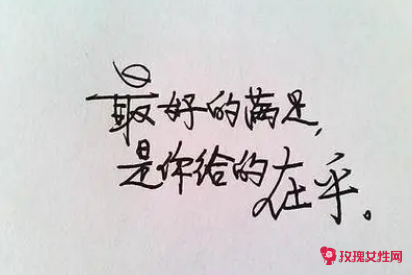 最好的满足,
是你给的在乎。
玫瑰女性网